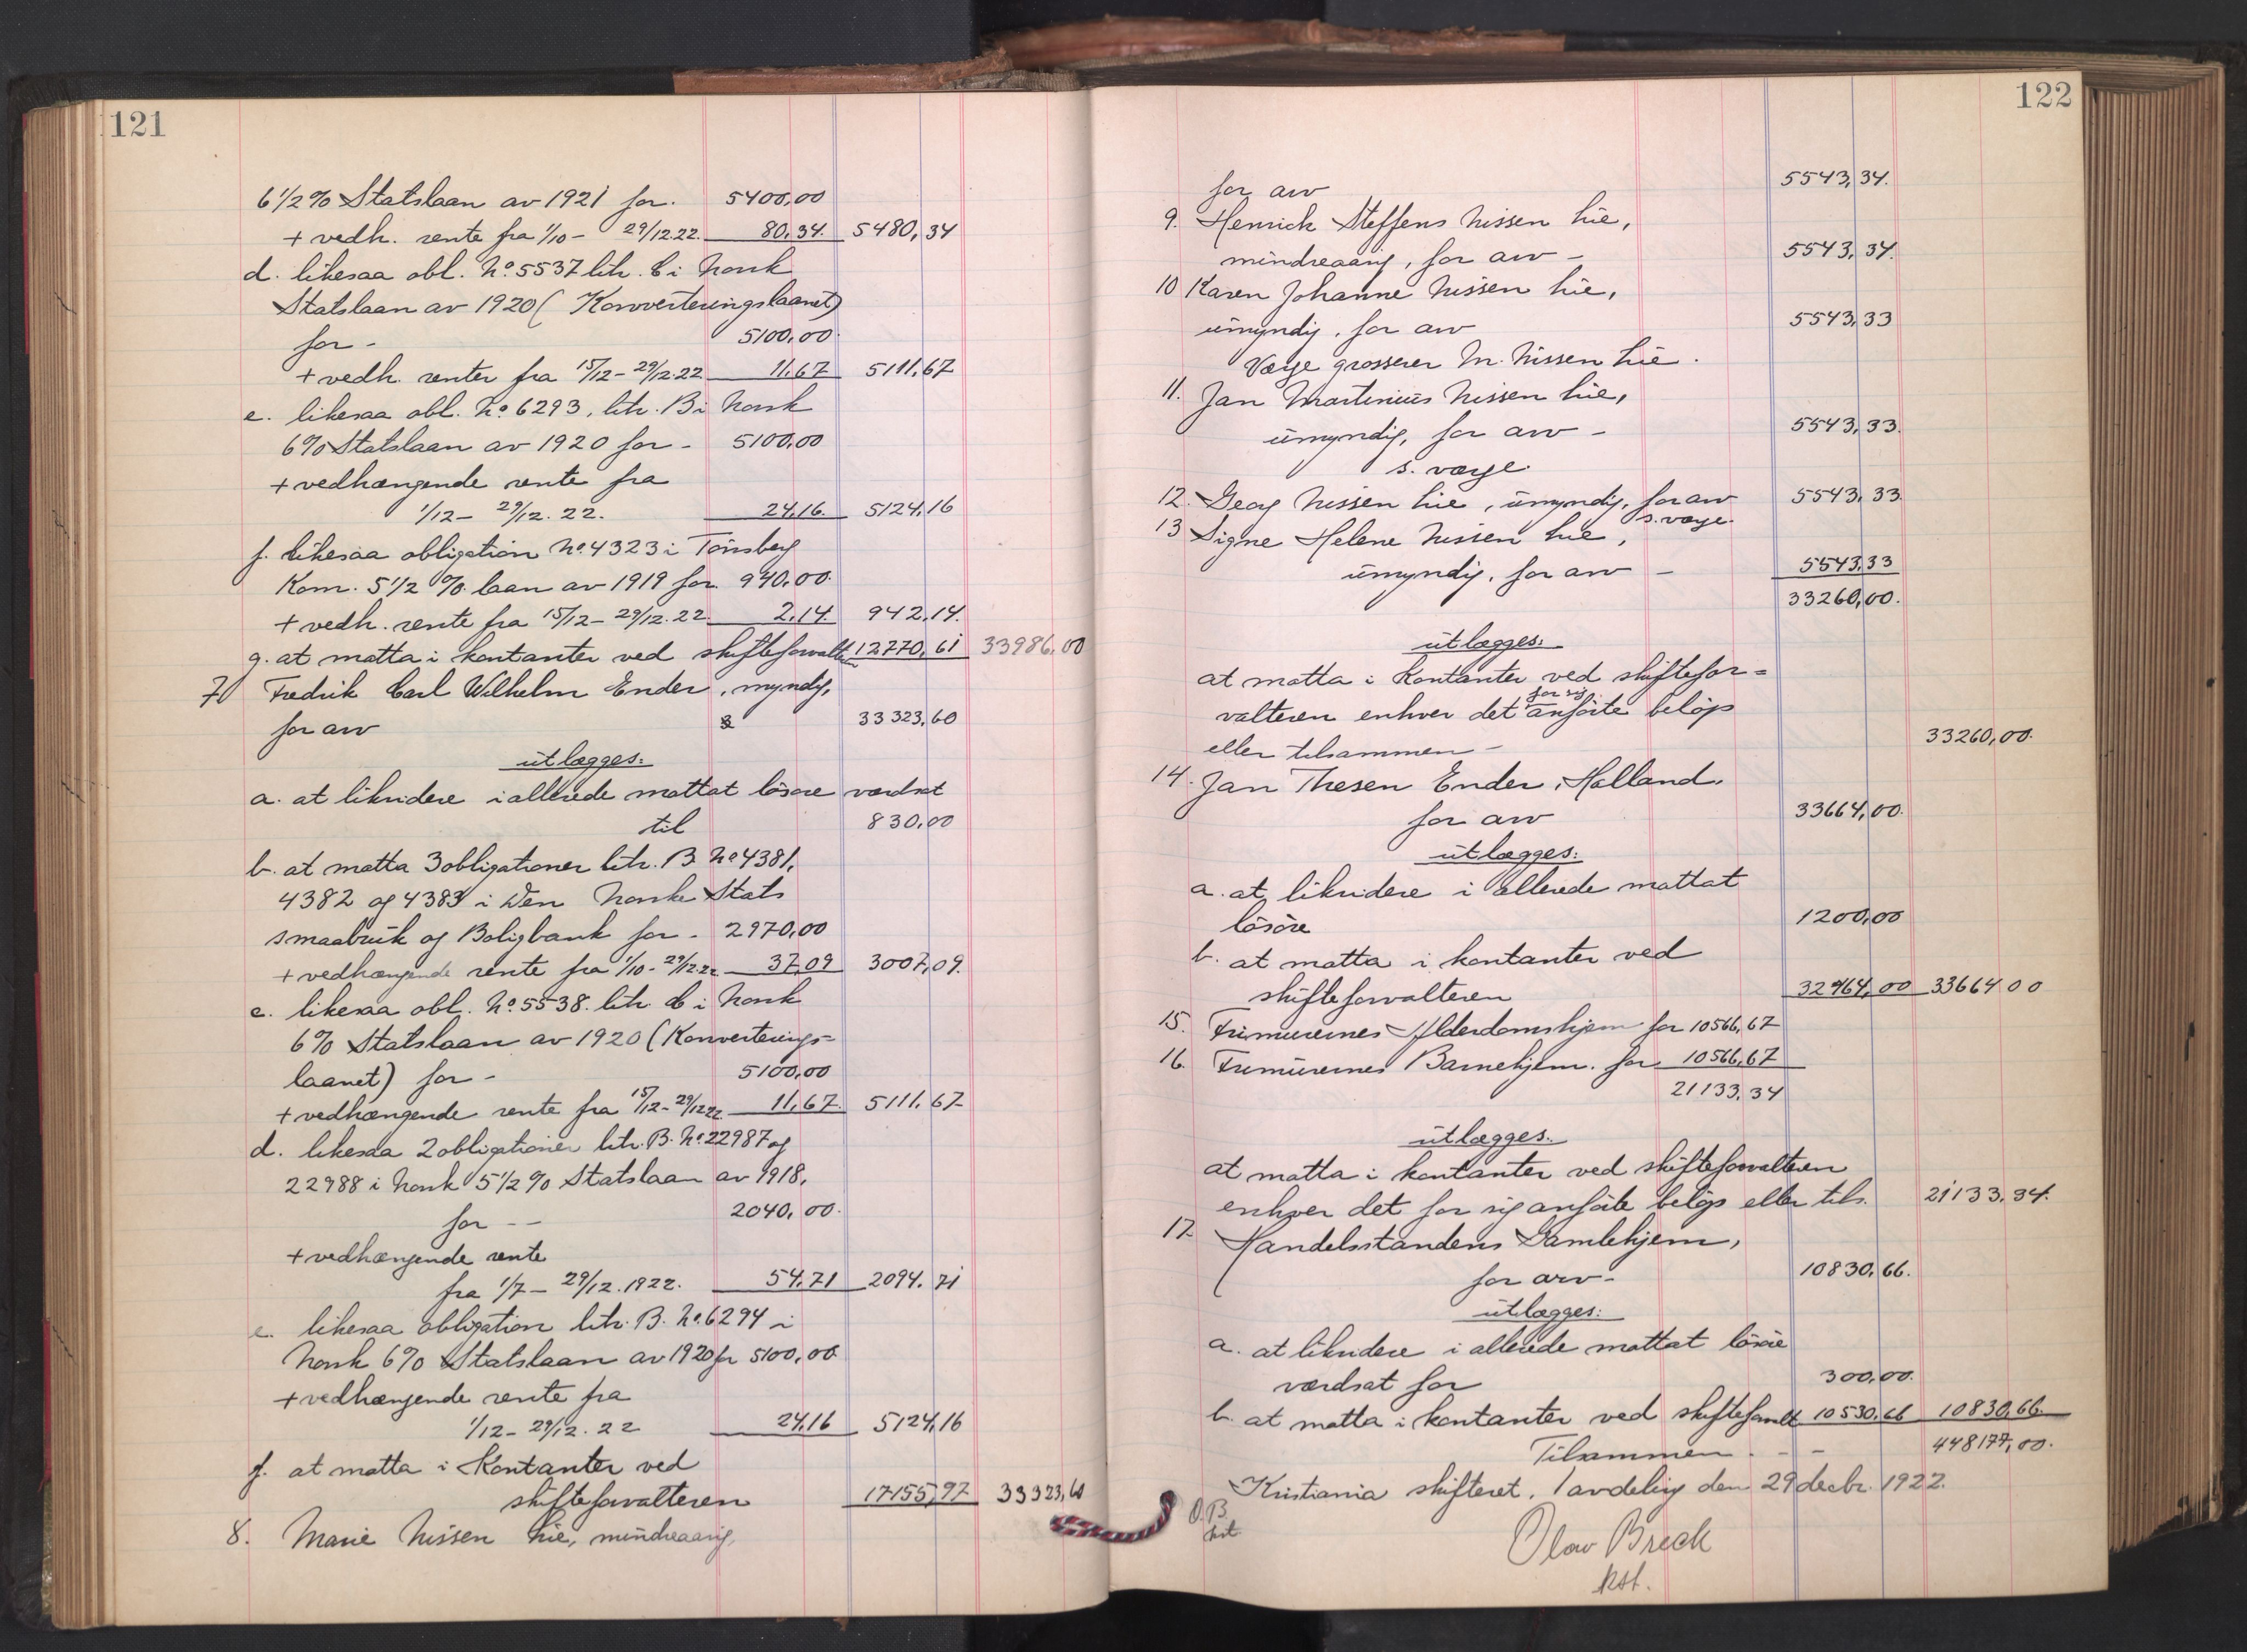 121
6 1/2 % Statslaan av 1921 for. 5400,00
+ vedh. rente fra 1/10 - 29/12.22. 80,34. 5480,34
d. likesaa obl. No. 5537 litr. C i Norsk
Statslaan av 1920 (Konverteringslaanet)
for - 5100,00.
+ vedh. renter fra 15/12 - 29/12.22 11,67 5111,67
e. likesaa obl. No. 6293, litr. B i Norsk
6% Statslaan av 1920 for - 5100,00
+ vedhængende rente fra
1/12 - 29/12. 22. 24,16. 5124,16
f. likesaa obligation No. 4323 i Tönsberg
Kom. 5 1/2 %. laan av 1919 for. 940,00.
+ vedh. rente fra 15/12 - 29/12.22. 2,14. 942,14.
g. at motta i kontanter ved skifteforvalteren 12770,61 33986,00
7) Fredrik Carl Wilhelm Ender, myndig,
for arv 33 323,60
utlægges:
a. at likvidere i allerede mottat lösöre værdsat
til 830,00
b. at motta 3 obligationer litr. B No 4381,
4382 og 4383 i Den Norske Stats
smaabruk og Boligbank for - 2970,00
+ vedhængende rente fra 1/10 - 29/12.22 37,09 3007,09.
c. likesaa obl. No. 5538. litr. C i Norsk
6% Statslaan av 1920 (Konverterings=
laanet) for - 5100,00
+ vedhængende rente fra 15/12 - 29/12 22. 11,67. 5111,67
d. likesaa 2 obligationer litr. B. No. 22987 og
22988 i Norsk 5 1/2 % Statslaan av 1918,
for -- 2040,00.
+ vedhængende rente
fra 1/7 - 29/12.1922. 54,71 2094,71
e. likesaa obligation litr. B. No. 6294 i
Norsk 6% Statslaan av 1920 for 5100,00
+ vedhængende rente fra
1/12 - 29/12.22 24,16 5124,16
f. at motta i Kontanter ved
skifteforvalteren 17155,97 33323,60
8. Marie Nissen Lie, mindreaarig,
122
for arv 5543,34.
9. Henrick Steffens Nissen Lie,
mindreaarig, for arv - 5543,34.
10 Karen Johanne Nissen Lie,
umyndig, for arv 5543,33
Værge grosserer M. Nissen Lie.
11. Jan Martinius Nissen Lie,
umyndig, for arv - 5543,33.
s. værge.
12. Georg Nissen Lie, umyndig, for arv 5543,33.
s. værge.
13 Signe Helene Nissen Lie,
umyndig, for arv - 5543,33
33260,00.
utlægges:
at motta i Kontanter ved skiftefor=
valteren enhver det for sig anförte belöp
eller tilsammen - 33260,00.
14. Jan Thesen Ender, Holland.
for arv 33664,00.
utlægges:
a. at likvidere i allerede mottat
lösöre 1200,00
b. at motta i kontanter ved
skifteforvalteren 32464,00 33664 00
15. Frimurernes Alderdomshjem for 10566,67
16. Frimurernes Barnehjem. for 10566,67
21133,34
utlægges.
at motta i kontanter ved skifteforvalteren
enhver det for sig anförte belöp eller tils. 21133,34.
17. Handelsstandens Gamlehjem,
for arv - 10830,66.
utlægges:
a. at likvidere i allerede mottat lösöre
værdsat for 300,00.
b. at motta i kontanter ved skifteforvalt 10530,66 10830,66.
Tilsammen - - 448177,00.
Kristiania skifteret. 1 avdeling den 29 decbr. 1922.
O.B.
kst
Olav Breck
kst.